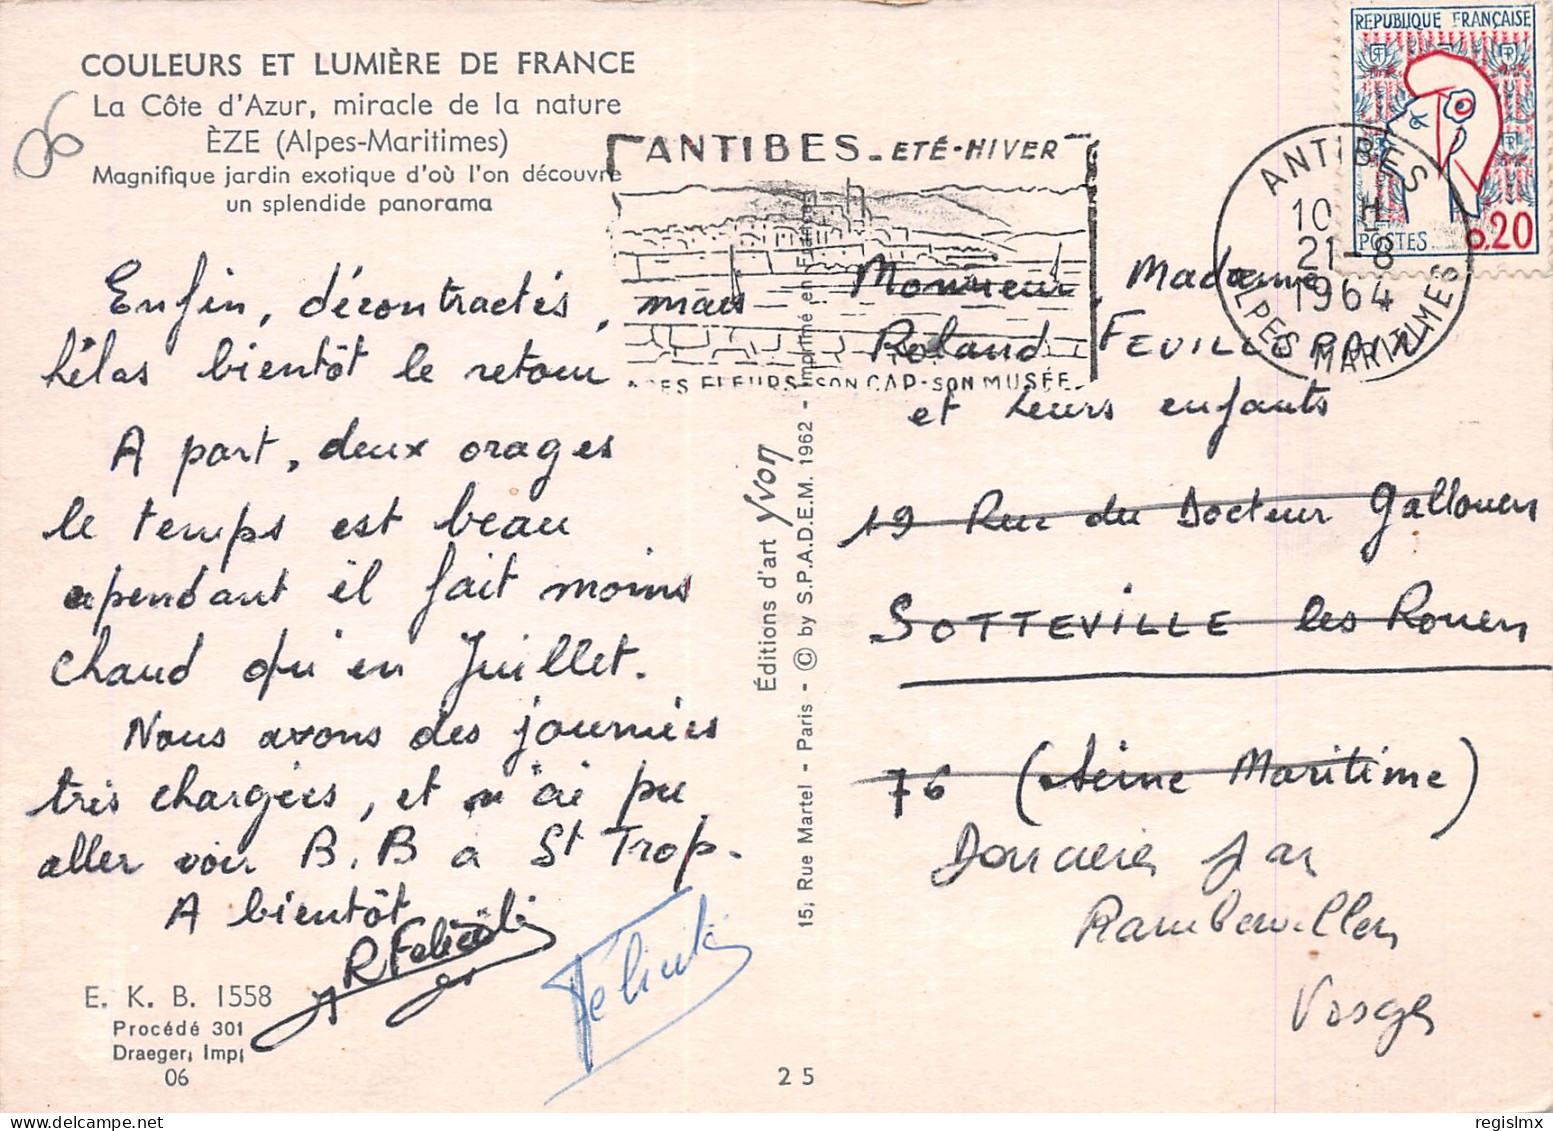 COULEURS ET LUMIÈRE DE FRANCE
La Côte d'Azur, miracle de la nature
ÈZE (Alpes-Maritimes)
Magnifique jardin exotique d'où l'on découvre
un splendide panorama
06
Enfin, décontractés, mais
hélas bientôt le retour
A part, deux orages
le temps est beau
cependant il fait moins
chaud qu'en Juillet.
Nous avons des journées
très chargées, et n'ai pu
aller voir B.B a St Trop.
A bientôt
E. K. B. 1558
Procédé 301
Draeger, Imp,
06
25
Éditions d'art Yvon
15, Rue Martel - Paris - © by S.P.A.D.E.M. 1962 - Imprimé en France
ANTIBES - ETÉ-HIVER
SES FLEURS-SON CAP-SON MUSÉE
REPUBLIQUE FRANÇAISE
RF
POSTES
0,20
ANTIBES
10 H
21-8
1964
ALPES MARITIMES
Monsieur, Madame
Roland FEUILLERAUX
et leurs enfants
19 Rue du Docteur Gallouen
SOTTEVILLE les Rouen
76 (Seine Maritime)
par
Rambervillers
Vosges
regislmx